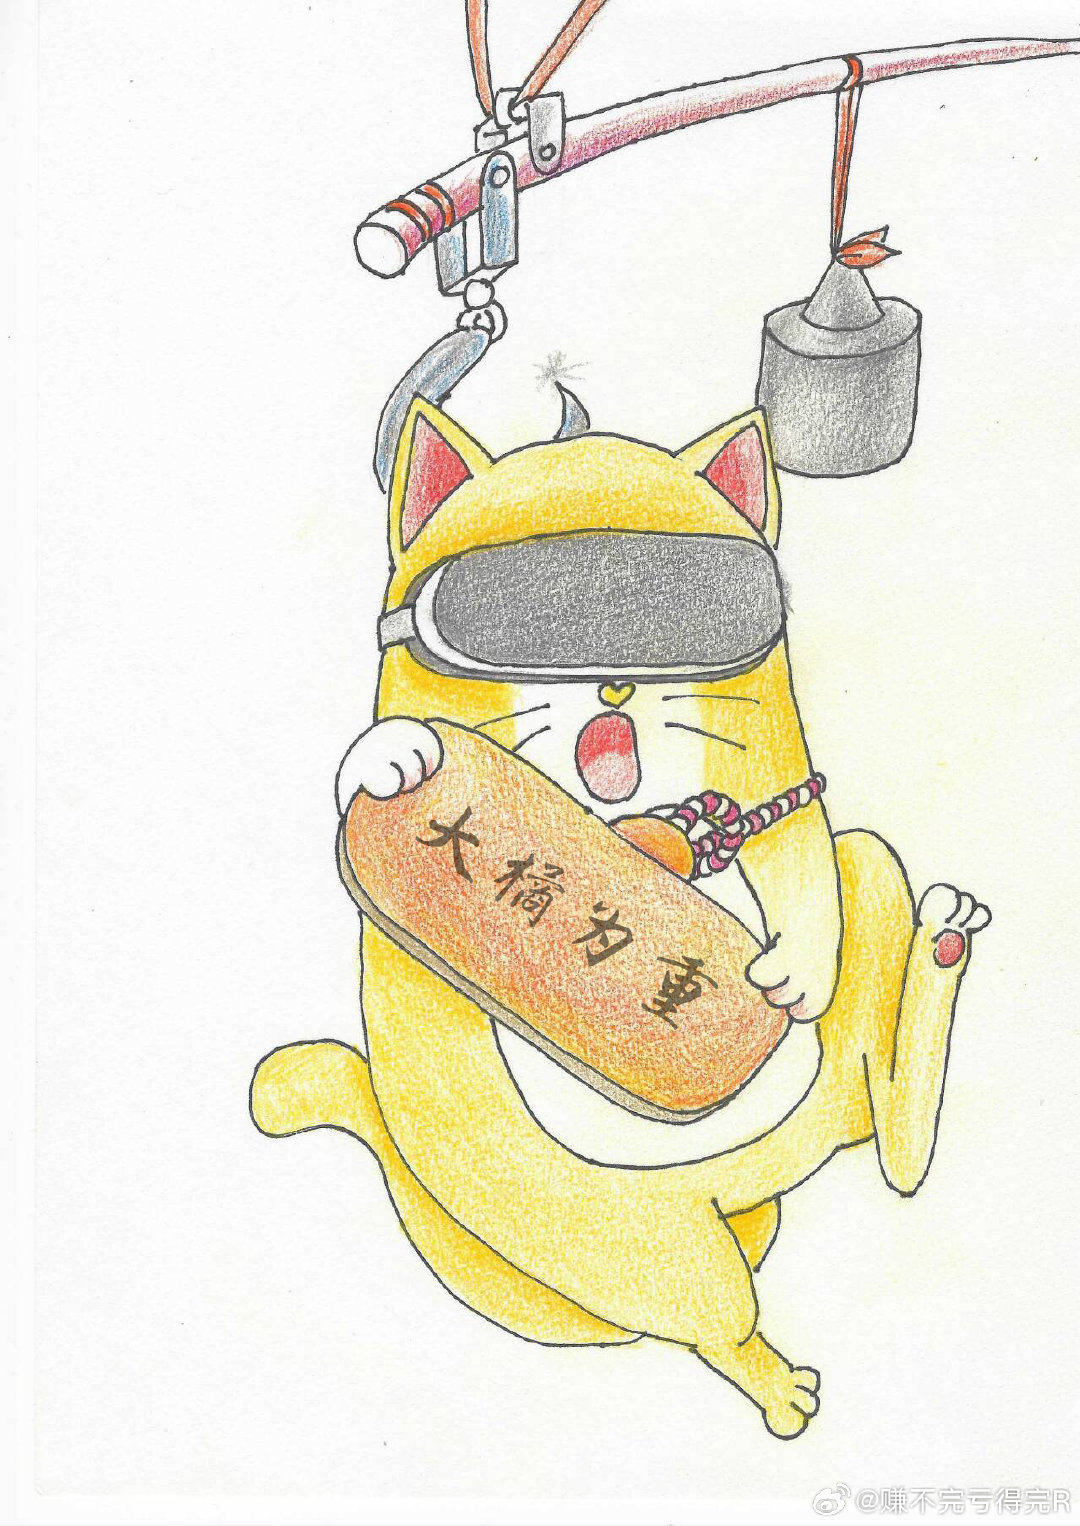 大橘为重
@赚不完亏得完R